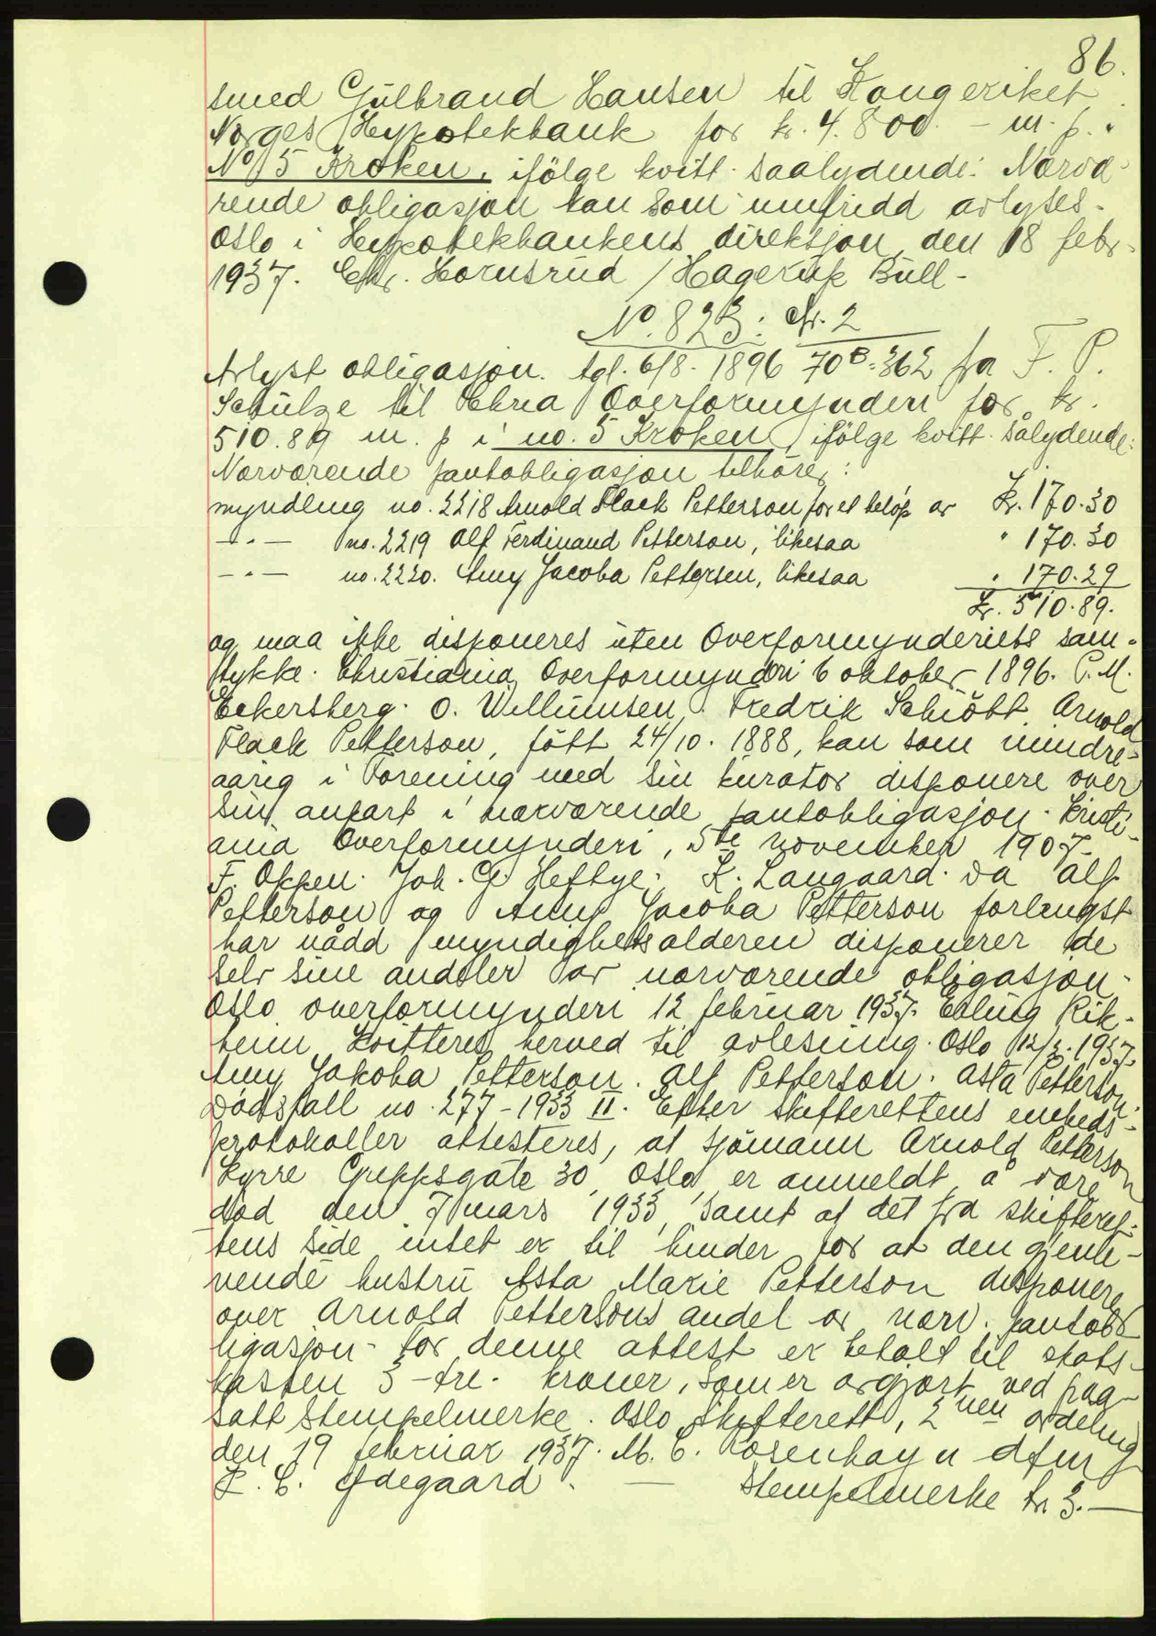 86.
smed Gulbrand Hansen til Kongeriket
Norges Hypotekbank for kr. 4.800 - m. p. i
No 5 Kroken, ifölge kvitt. saalydende: Nærvæ-
rende obligasjon kan som umfridd avlyses.
Oslo i Hypotekbankens direksjon den 18 febr.
1937. Chr. Hornsrud / Hagerup Bull -
No. 823: Nr. 2
Avlyst obligasjon. tgl. 6/8. 1896 70B-362 fra F. P.
Schulze til Chria Overformynderi for kr.
510.89 m. p i no. 5 Kroken, ifölge kvitt. sålydende:
Nærværende pantobligasjon tilhörer:
myndling no. 2218 Arnold Flack Petterson for et belöp av Kr. 170.30
-"- no. 2219 Alf Ferdinand Petterson, likesaa " 170.30
-"- no. 2220. Amy Jacoba Pettersen, likesaa " 170.29
Kr. 510.89.
og maa ikke disponeres uten Overformynderiets sam-
tykke. Christiania Overformynderi 6 oktober 1896. P.M.
Eckersberg. O. Willumsen. Fredrik Schiött. Arnold
Flack Petterson, fött 24/10. 1888, kan som mindre-
aarig i Forening med sin kurator disponere over
sin anpart i nærværende pantobligasjon. Kristi-
ania Overformynderi, 5te november 1907.
F. Oppen. Joh. G. Heftye. K. Langaard. Da Alf
Petterson og Amy Jacoba Petterson forlengst
har nådd myndighetsalderen disponerer de
selv sine andeler av nærværende obligasjon.
Oslo overformynderi 12 februar 1937. Erling Rik-
heim. Kvitteres herved til avlesning. Oslo 12/2. 1937.
Amy Jakoba Petterson. Alf Petterson. Asta Petterson.
Dödsfall no. 277-1933 II. Efter skifterettens embeds-
protokoller attesteres, at sjömann Arnold Petterson
Kyrre Greppsgate 30, Oslo, er anmeldt å være
död den 7 mars 1933, samt at det fra skifteret-
tens side intet er til hinder for at den gjenle-
vende hustru Asta Marie Petterson disponerer
over Arnold Pettersons andel av nærv. pantob-
ligasjon. For denne attest er betalt til stats-
kassen 3 - tre - kroner, som er avgjort ved paa-
satt stempelmerke. Oslo skifterett, 2nen avdeling
den 19 februar 1937. M. C. Rosenhayn dfm
K. C. Ödegaard. — Stempelmerke kr. 3.—